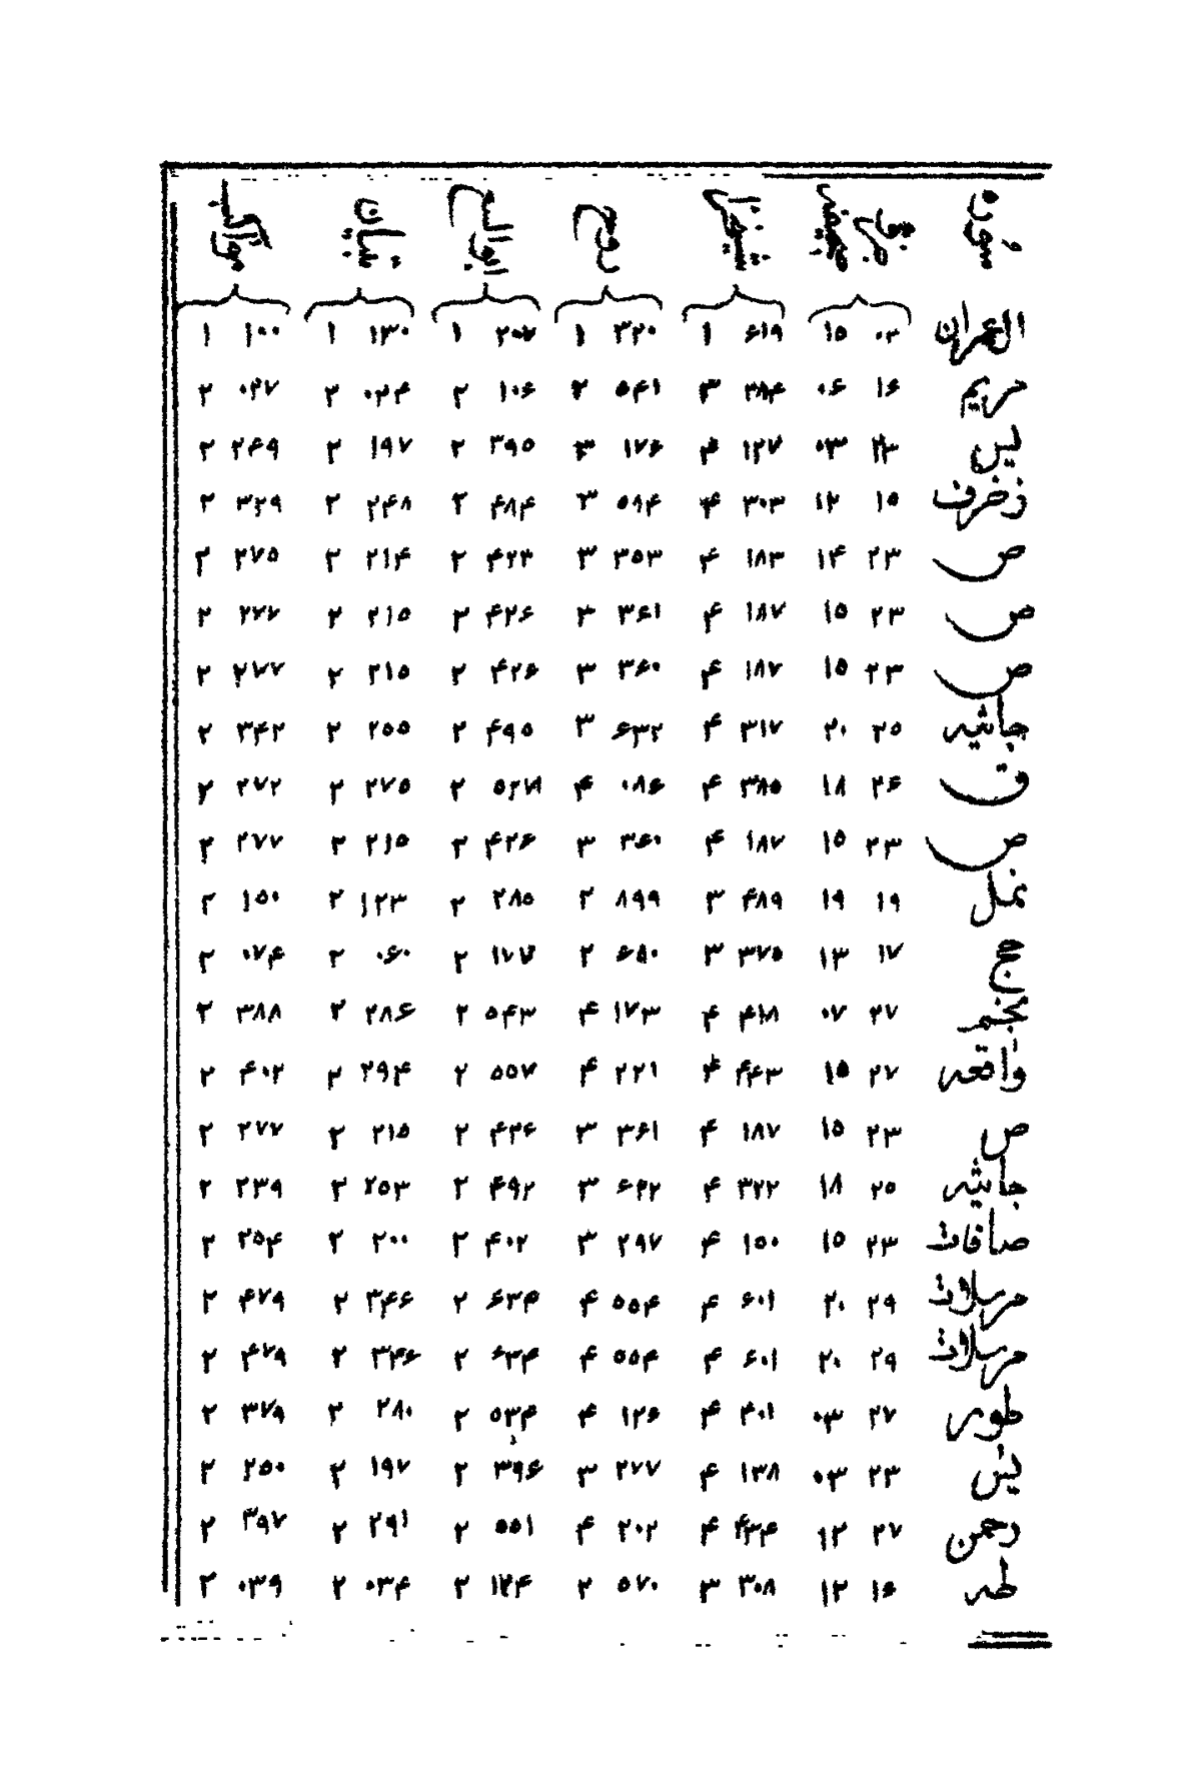 سوره
العمران ۰۳ ۱۵ ۶۱۹ ۱ ۳۲۰ ۱ ۲۰۷ ۱ ۱۳۰ ۱ ۱۰۰ ۱
مریم ۱۶ ۰۶ ۳۸۴ ۳ ۵۴۱ ۲ ۱۰۶ ۲ ۰۲۴ ۲ ۰۲۷ ۲
یس ۲۳ ۰۳ ۱۲۷ ۴ ۱۷۶ ۳ ۳۹۵ ۲ ۱۹۷ ۲ ۲۴۹ ۲
زخرف ۱۵ ۱۲ ۳۰۳ ۴ ۵۸۴ ۳ ۴۸۴ ۲ ۲۴۸ ۲ ۳۲۹ ۲
ص ۲۳ ۱۴ ۱۸۳ ۴ ۳۵۳ ۳ ۴۲۳ ۲ ۲۱۴ ۲ ۲۷۵ ۲
ص ۲۳ ۱۵ ۱۸۷ ۴ ۳۶۱ ۳ ۴۲۶ ۲ ۲۱۵ ۲ ۲۷۷ ۲
ص ۲۳ ۱۵ ۱۸۷ ۴ ۳۶۰ ۳ ۴۲۶ ۲ ۲۱۵ ۲ ۲۷۷ ۲
جاثیه ۲۵ ۲۰ ۳۱۷ ۴ ۶۳۲ ۳ ۴۹۵ ۲ ۲۵۵ ۲ ۳۴۲ ۲
ق ۲۶ ۱۸ ۳۸۵ ۴ ۰۸۶ ۴ ۲ ۲۷۵ ۲ ۲۷۲ ۲
ص ۲۳ ۱۵ ۱۸۷ ۴ ۳۶۰ ۳ ۴۲۶ ۲ ۲۱۵ ۲ ۲۷۷ ۲
نمل ۱۹ ۱۹ ۴۸۹ ۳ ۸۹۹ ۲ ۲۸۵ ۲ ۱۲۳ ۲ ۱۵۰ ۲
حج ۱۷ ۱۳ ۳۷۵ ۳ ۶۵۰ ۲ ۲ ۰۶۰ ۲ ۰۷۴ ۲
نجم ۲۷ ۰۷ ۴۱۸ ۴ ۱۷۳ ۴ ۵۴۳ ۲ ۲۸۶ ۲ ۳۸۸ ۲
واقعه ۲۷ ۱۵ ۴۴۳ ۴ ۲۲۱ ۴ ۵۵۷ ۲ ۲۹۴ ۲ ۴۰۲ ۲
ص ۲۳ ۱۵ ۱۸۷ ۴ ۳۶۱ ۳ ۴۲۶ ۲ ۲۱۵ ۲ ۲۷۷ ۲
جاثیه ۲۵ ۱۸ ۳۲۲ ۴ ۶۴۲ ۳ ۴۹۲ ۲ ۲۵۳ ۲ ۲۳۹ ۲
صافات ۲۳ ۱۵ ۱۵۰ ۴ ۲۹۷ ۳ ۴۰۲ ۲ ۲۰۰ ۲ ۲۵۴ ۲
مرسلات ۲۹ ۲۰ ۶۰۱ ۴ ۵۵۴ ۴ ۶۳۴ ۲ ۳۴۶ ۲ ۴۷۹ ۲
مرسلات ۲۹ ۲۰ ۶۰۱ ۴ ۵۵۴ ۴ ۶۳۴ ۲ ۳۴۶ ۲ ۴۷۹ ۲
طور ۲۷ ۰۳ ۴۰۱ ۴ ۱۲۶ ۴ ۵۳۴ ۲ ۲۸۰ ۲ ۳۷۹ ۲
یس ۲۳ ۰۳ ۱۳۸ ۴ ۲۷۷ ۳ ۳۹۶ ۲ ۱۹۷ ۲ ۲۵۰ ۲
رحمن ۲۷ ۱۲ ۴۳۴ ۴ ۲۰۲ ۴ ۵۵۱ ۲ ۲۹۱ ۲ ۳۹۷ ۲
طه ۱۶ ۱۲ ۳۰۸ ۳ ۵۷۰ ۲ ۱۲۴ ۲ ۰۳۴ ۲ ۰۳۹ ۲